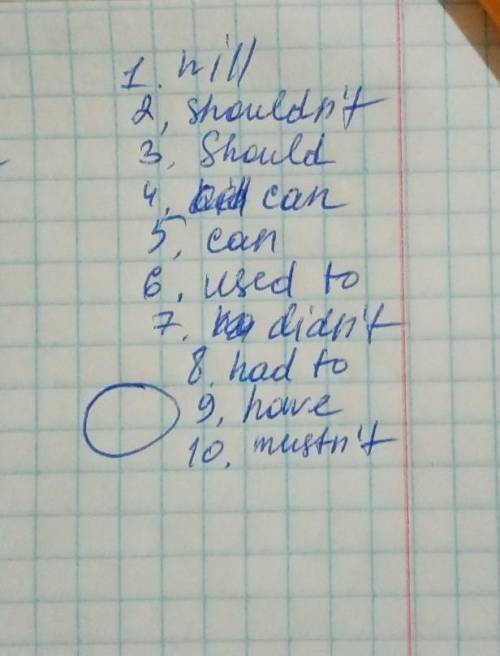 1. will
2, shouldn't
3, Should
4, can
5, can
6, used to
7. didn't
8. had to
9, have
10, mustn't